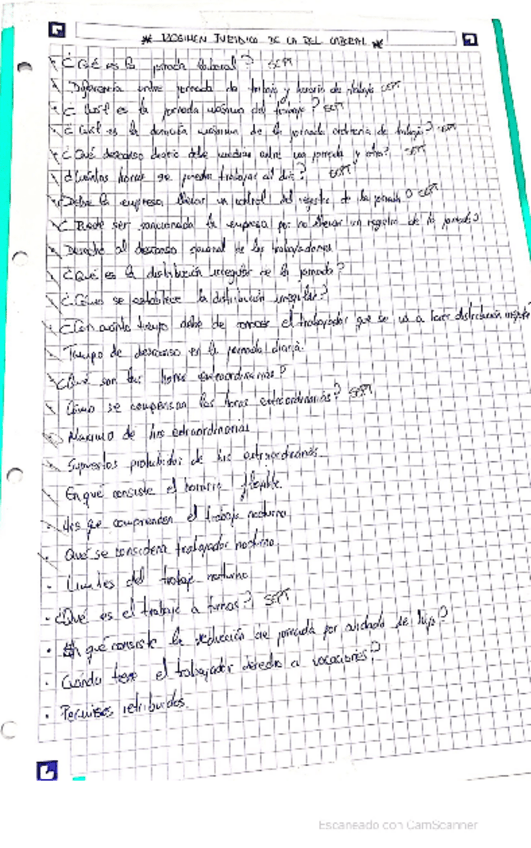 * RÉGIMEN JURÍDICO DE LA REL LABORAL *
¿Qué es la jornada laboral? SEPT
Diferencia entre jornada de trabajo y horario de trabajo SEPT
¿Cuál es la jornada máxima del trabajo? SEPT
¿Cuál es la duración máxima de la jornada ordinaria de trabajo? SEPT
¿Qué descanso diario debe mediar entre una jornada y otra? SEPT
¿Cuántas horas se pueden trabajar al día? SEPT
¿Debe la empresa llevar un control del registro de la jornada? SEPT
¿Puede ser sancionada la empresa por no llevar un registro de la jornada?
Derecho al descanso semanal de los trabajadores
¿Qué es la distribución irregular de la jornada?
¿Cómo se establece la distribución irregular?
¿Con cuánto tiempo debe de conocer el trabajador que se va a hacer distribución
Tiempo de descanso en la jornada diaria.
¿Qué son las horas extraordinarias?
Cómo se compensan las horas extraordinarias? SEPT
Máximo de hrs extraordinarias
Supuestos prohibidos de hrs extraordinarias
En qué consiste el horario flexible
Hrs que comprenden el trabajo nocturno
· Qué se considera trabajador nocturno
· Límites del trabajo nocturno
· ¿Qué es el trabajo a turnos? SEPT
· En qué consiste la reducción de jornada por cuidado de hijo?
· Cuándo tiene el trabajador derecho a vacaciones?
· Permisos retribuidos
Escaneado con CamScanner